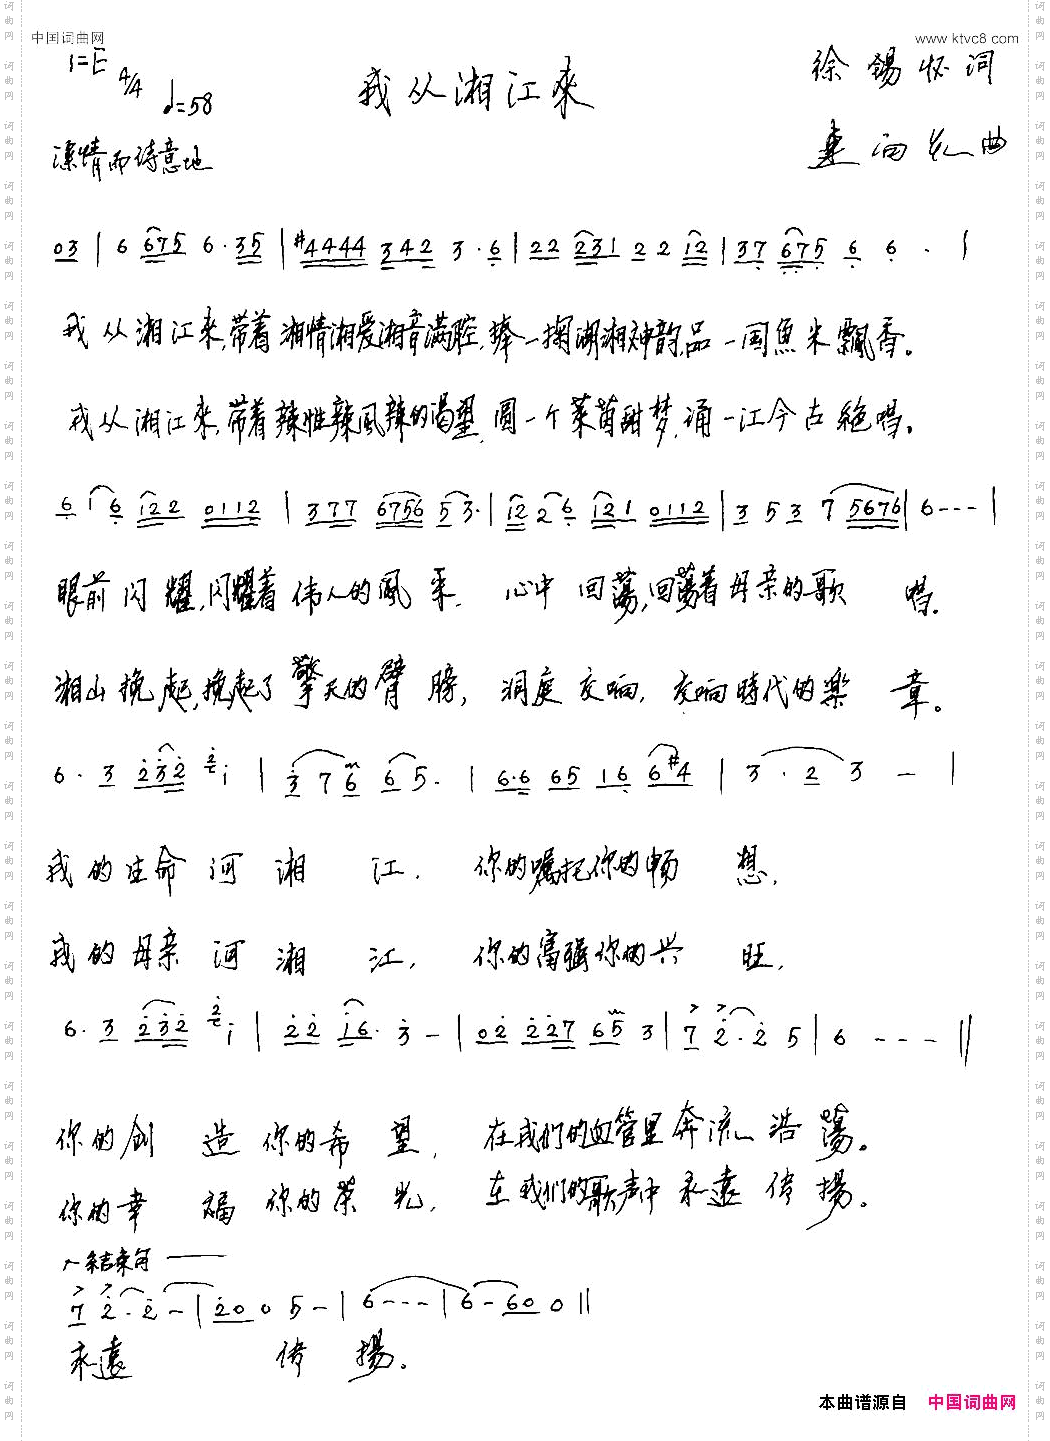 中国词曲网
www.ktvc8.com
1=E 4/4 ♩=58
我从湘江來
徐锡怀 词
曲
深情而诗意地
03 | 6 675 6·35 | #4444 342 3·6 | 22 231 22 12 | 37 675 6 6· |
我从湘江來,带着湘情湘爱湘音满腔,捧一掬湖湘神韵,品一国魚米飄香。
我从湘江來,带着辣性辣風辣的渴望,圆一个菜茵甜梦,诵一江今古絶唱。
6 16 122 0112 | 377 6756 53· | 12 26 121 0112 | 3 5 3 7 5676 | 6--- |
眼前闪耀,闪耀着伟人的風采, 心中回蕩,回蕩着母亲的歌唱,
湘山挽起,挽起了擎天的臂膀, 洞庭交响, 交响時代的樂章。
6· 3 232 2 1 | 3 7 6 6 5· | 6·6 65 16 6#4 | 3· 2 3 - |
我的生命河湘江, 你的嘱托你的畅想,
我的母亲河湘江, 你的富强你的兴旺,
6· 3 232 2 1 | 22 16· 3 - | 02 227 65 3 | 7 2·2 5 | 6 --- ‖
你的创造你的希望, 在我们的血管里奔流浩蕩。
你的幸福你的荣光, 在我们的歌声中永遠传揚。
结束句
7 2·2 - | 20 0 5 - | 6--- | 6-60 0 ‖
永遠传揚。
本曲谱源自 中国词曲网